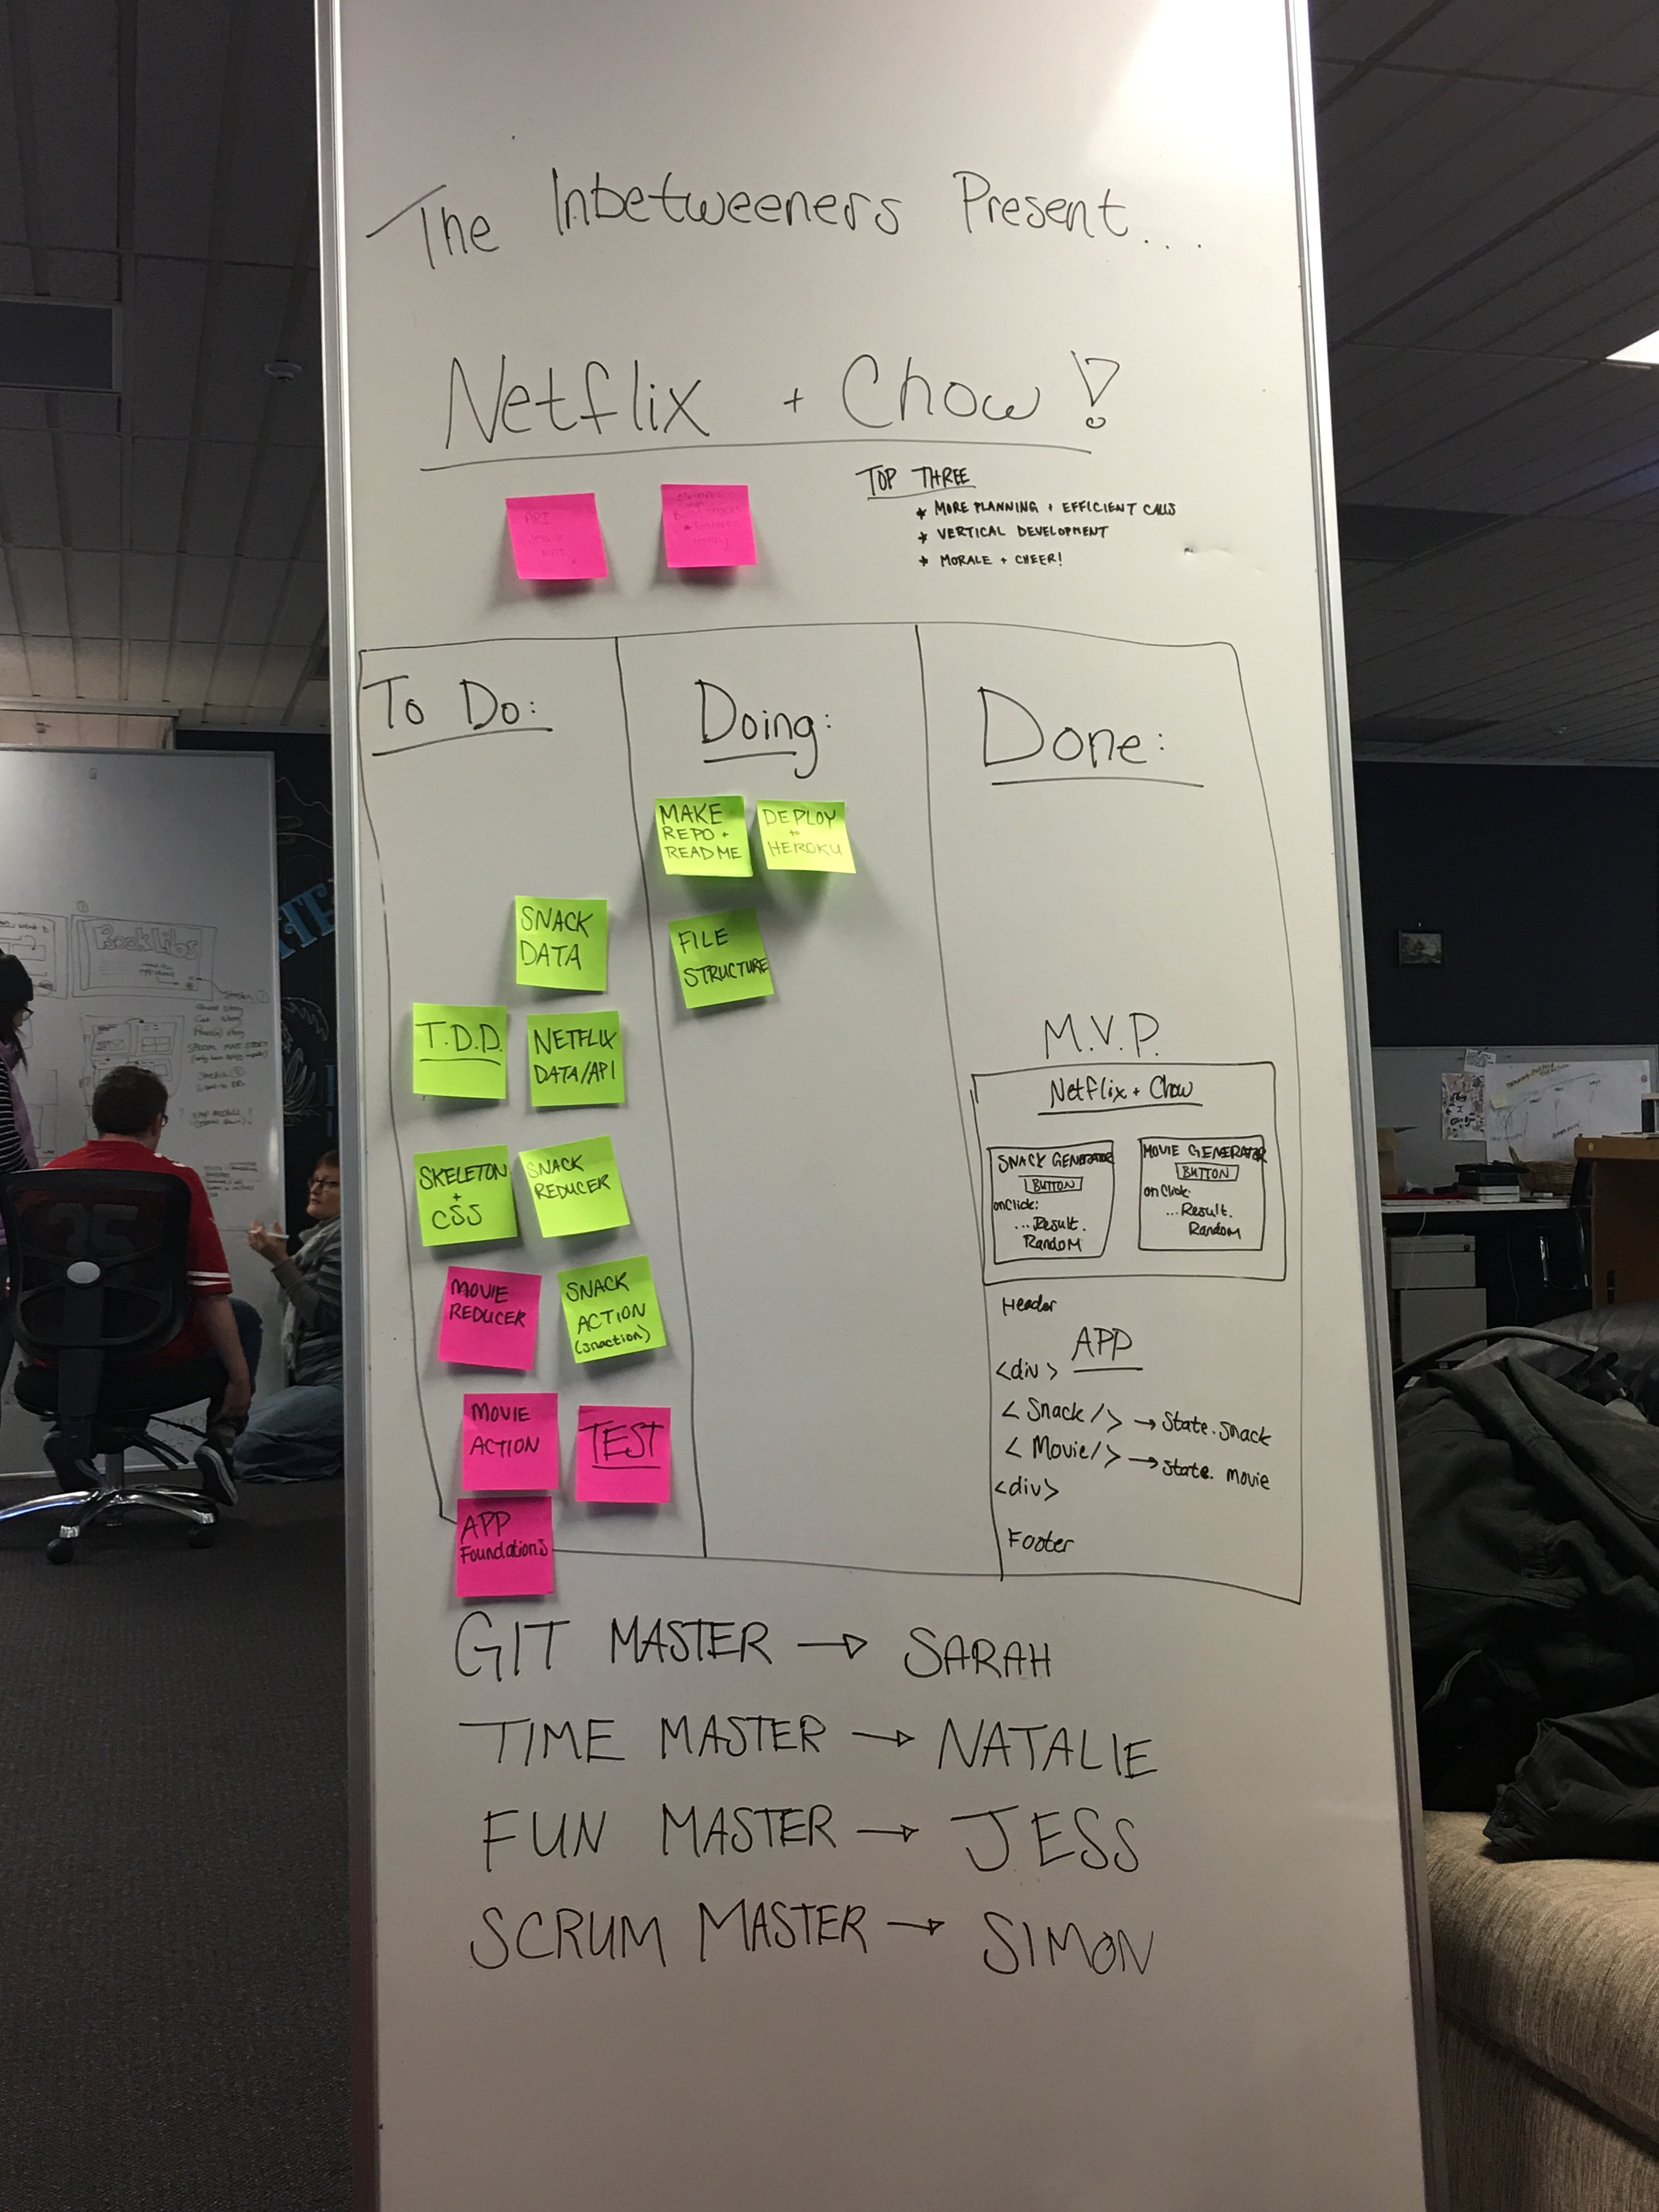 The Inbetweeners Present...
Netflix + Chow!
API
TOP THREE
* MORE PLANNING + EFFICIENT CALLS
* VERTICAL DEVELOPMENT
* MORALE + CHEER!
To Do:
SNACK
DATA
T.D.D.
NETFLIX
DATA/API
SKELETON
+
CSS
SNACK
REDUCER
MOVIE
REDUCER
SNACK
ACTION
(snaction)
MOVIE
ACTION
TEST
APP
Foundations
Doing:
MAKE
REPO +
README
DEPLOY
to
HEROKU
FILE
STRUCTURE
Done:
M.V.P.
Netflix + Chow
SNACK GENERATOR
BUTTON
onClick:
...Result.
Random
MOVIE GENERATOR
BUTTON
onClick:
...Result.
Random
Header
APP
<div>
< Snack /> → State.snack
< Movie/> → state. movie
<div>
Footer
GIT MASTER → SARAH
TIME MASTER → NATALIE
FUN MASTER → JESS
SCRUM MASTER → SIMON
BookLibs
35